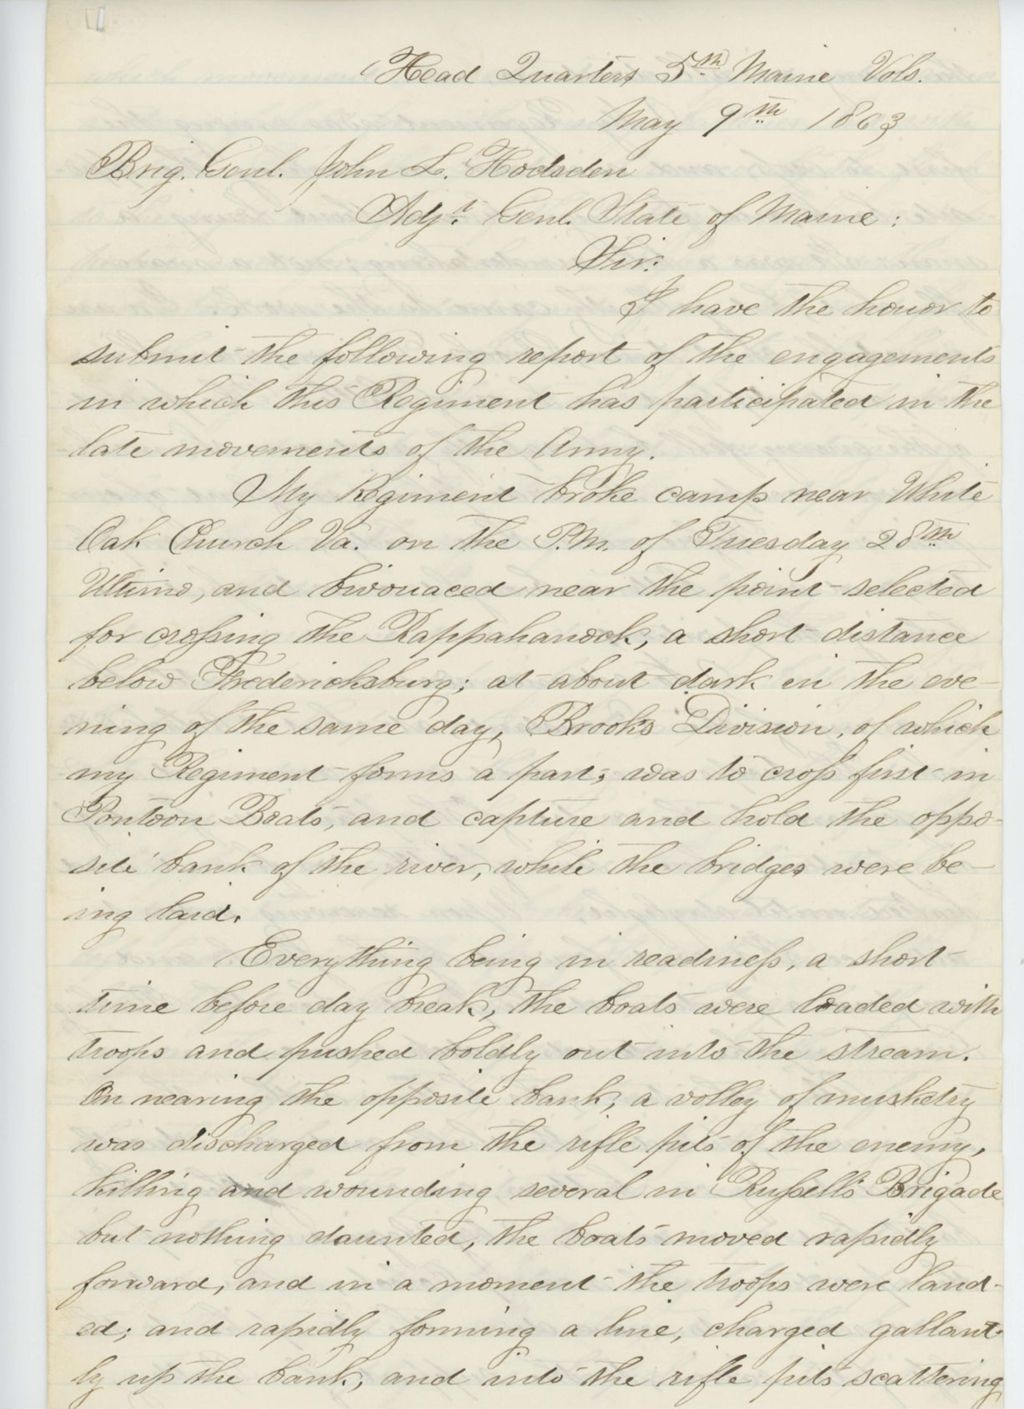 Head Quarters 5th Maine Vols.
May 9th 1863
Brig. Genl. John L. Hodsden
Adjt. Genl. State of Maine:
Sir:
I have the honor to
submit the following report of the engagements
in which this Regiment has participated in the
late movements of the Army.
My Regiment broke camp near White
Oak Church Va. on the P.M. of Tuesday 28th
Ultimo, and bivouaced near the point selected
for crossing the Rappahanock, a short distance
below Fredericksburg; at about dark in the eve-
ning of the same day, Brooks Division, of which
my Regiment forms a part, was to cross first in
Pontoon Boats, and capture and hold the oppo-
site bank of the river, while the bridges were be-
ing laid.
Everything being in readiness, a short
time before day break, the boats were loaded with
troops and pushed boldly out into the stream.
On nearing the opposite bank, a volley of musketry
was discharged from the rifle pits of the enemy,
killing and wounding several in Russell's Brigade
but nothing daunted, the boats moved rapidly
forward, and in a moment the troops were land-
ed; and rapidly forming a line, charged gallant-
ly up the bank, and into the rifle pits scattering